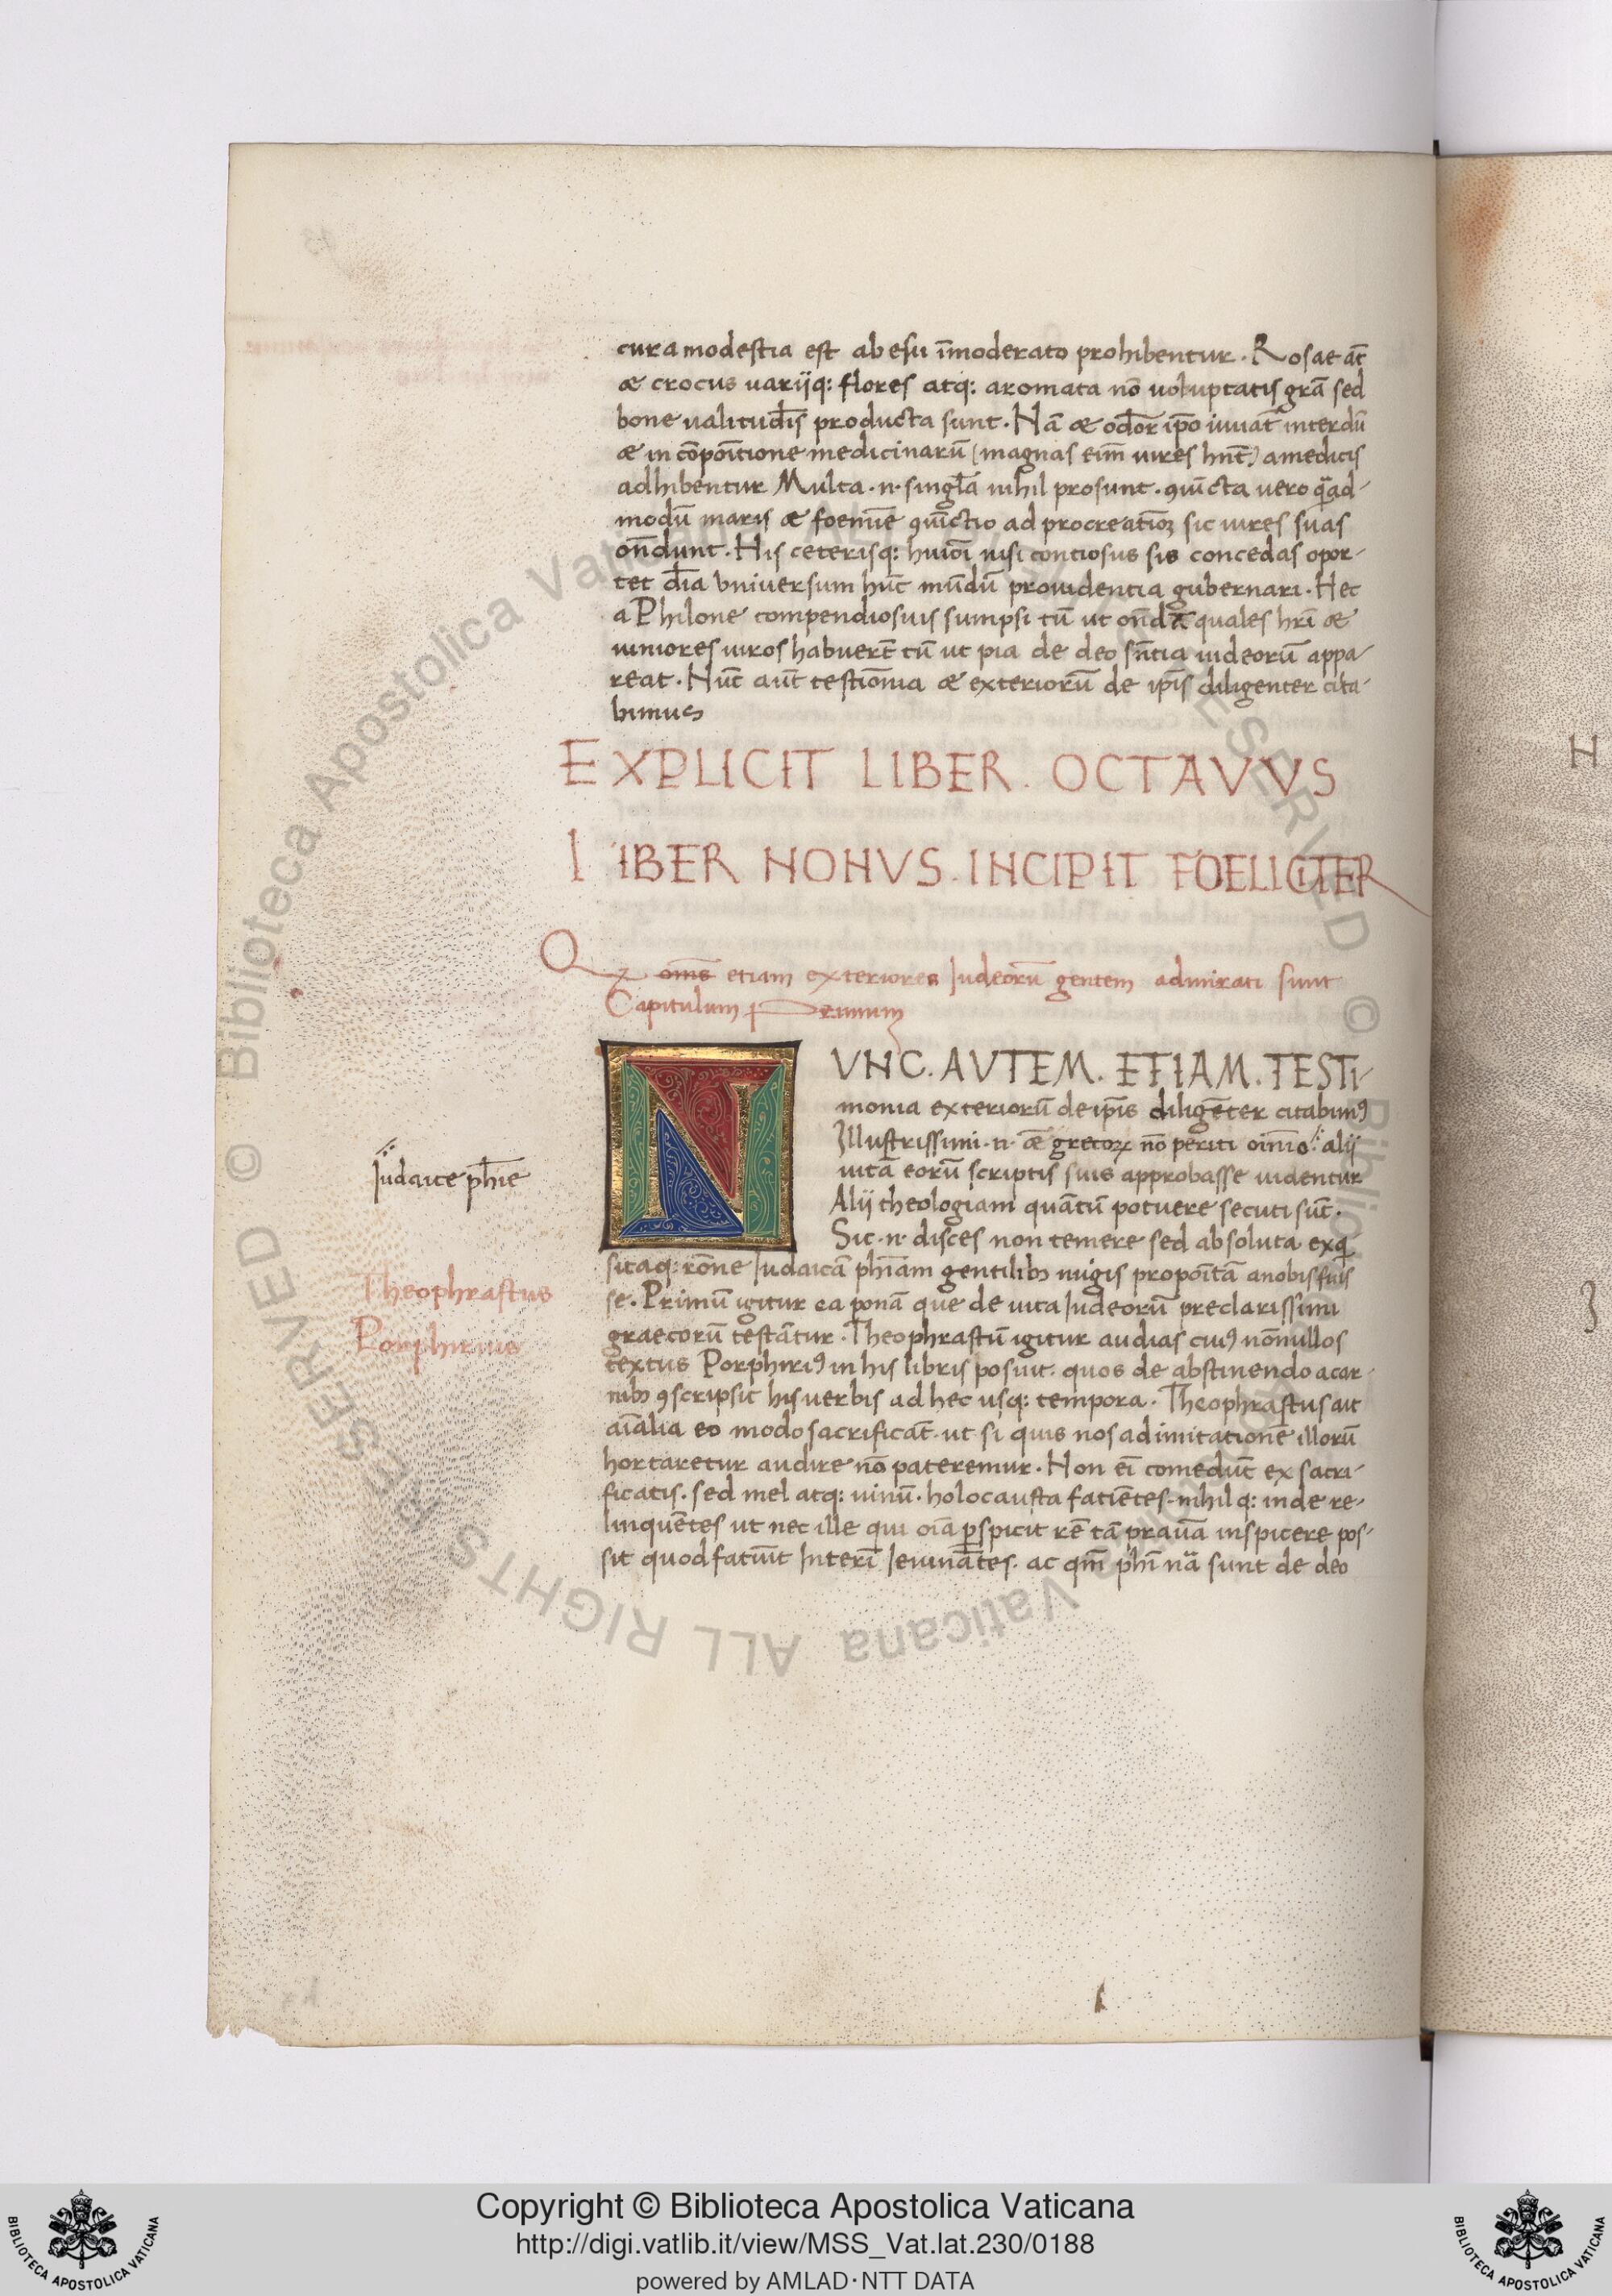 cura modestia est ab esu īmoderato prohibentur. Rosae at̄
æ crocus uarijq: flores atq: aromata nō uoluptatis grā sed
bone ualitud̄is producta sunt. Nā æ od̄or ip̄o iuuat̄ interdū
æ in cōpoītione medicinarū (magnas eim̄ uires hn̄t) a medicis
adhibentur Multa .n. singl̄a nihil prosunt. 9iūcta uero q̄ad-
modū maris æ foemīe 9iūctio ad procreatioꝫ sic uires suas
on̄dunt. His ceterisq: huiōi nisi contiosus sis concedas opor-
tet d̄ia vniuersum hūc mūdū prouidentia gubernari. Hec
a Philone compendiosuis sumpsi tū ut on̄dā quales hr̄i æ
iuniores uiros habuerēt tū ut pia de deo sn̄tia iudeorū appa-
reat. Nūc aūt testiōnia æ exteriorū de ip̄is diligenter cita-
bimus
EXPLICIT LIBER. OCTAVVS
lIBER NONVS. INCIPIT FOELICITER
Q etiam exteriores Iudeorū gentem admirati sunt
Capitulum Primum
VNC. AVTEM. ETIAM. TESTI-
monia exteriorū de ip̄is diligēter citabim9
Illustrissimi .n. æ grecoꝝ nō periti alij
uitā eorū scriptis suis approbasse uidentur
Alij theologiam quātū potuere secuti sūt.
Sic .n. disces non temere sed absoluta exq
Iudaice ph̄ie
sitaq: rōne Iudaicā phīam gentilibꝫ nugis propoītā a nobis fuis
Theophrastus
se. Primū igitur ea ponā que de uita Iudeorū preclarissimi
Porphirius
graecorū testātur. Theophrastū igitur audias cui9 nōnullos
textus Porphiri9 in his libris posuit. quos de abstinendo a car-
nibꝫ 9scripsit his uerbis ad hec usq: tempora. Theophrastus ait
aīalia eo modo sacrificāt. ut si quis nos ad imitationē illorū
hortaretur audire nō pateremur. Non eī comedūt ex sacri-
ficatis. sed mel atq: uinū. holocausta faciētes. nihil q: inde re-
linquētes ut nec ille qui oīa ꝑspicit rē tā prauā inspicere pos-
sit quod faciūt Interī Ieiunātes. ac qm̄ phī nā sunt de deo
Copyright © Biblioteca Apostolica Vaticana
http://digi.vatlib.it/view/MSS_Vat.lat.230/0188
powered by AMLAD·NTT DATA
BIBLIOTECA APOSTOLICA VATICANA
BIBLIOTECA APOSTOLICA VATICANA